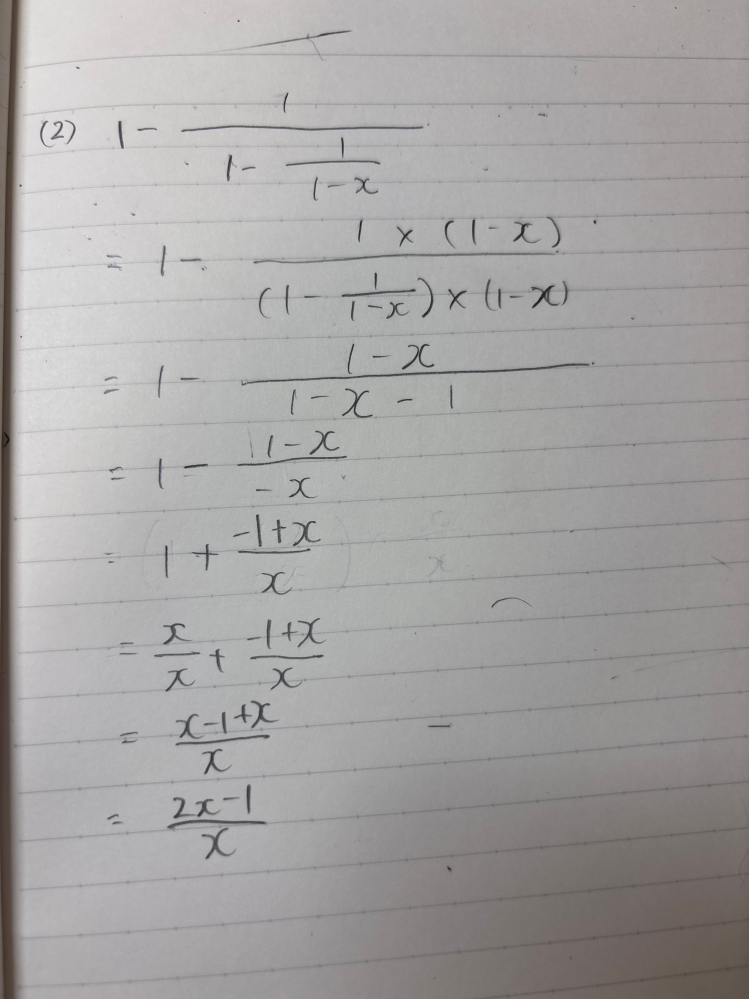 (2) 1 - \frac{1}{1 - \frac{1}{1-x}}
= 1 - \frac{1 × (1-x)}{(1 - \frac{1}{1-x}) × (1-x)}
= 1 - \frac{1-x}{1-x-1}
= 1 - \frac{1-x}{-x}
= 1 + \frac{-1+x}{x}
= \frac{x}{x} + \frac{-1+x}{x}
= \frac{x-1+x}{x}
= \frac{2x-1}{x}